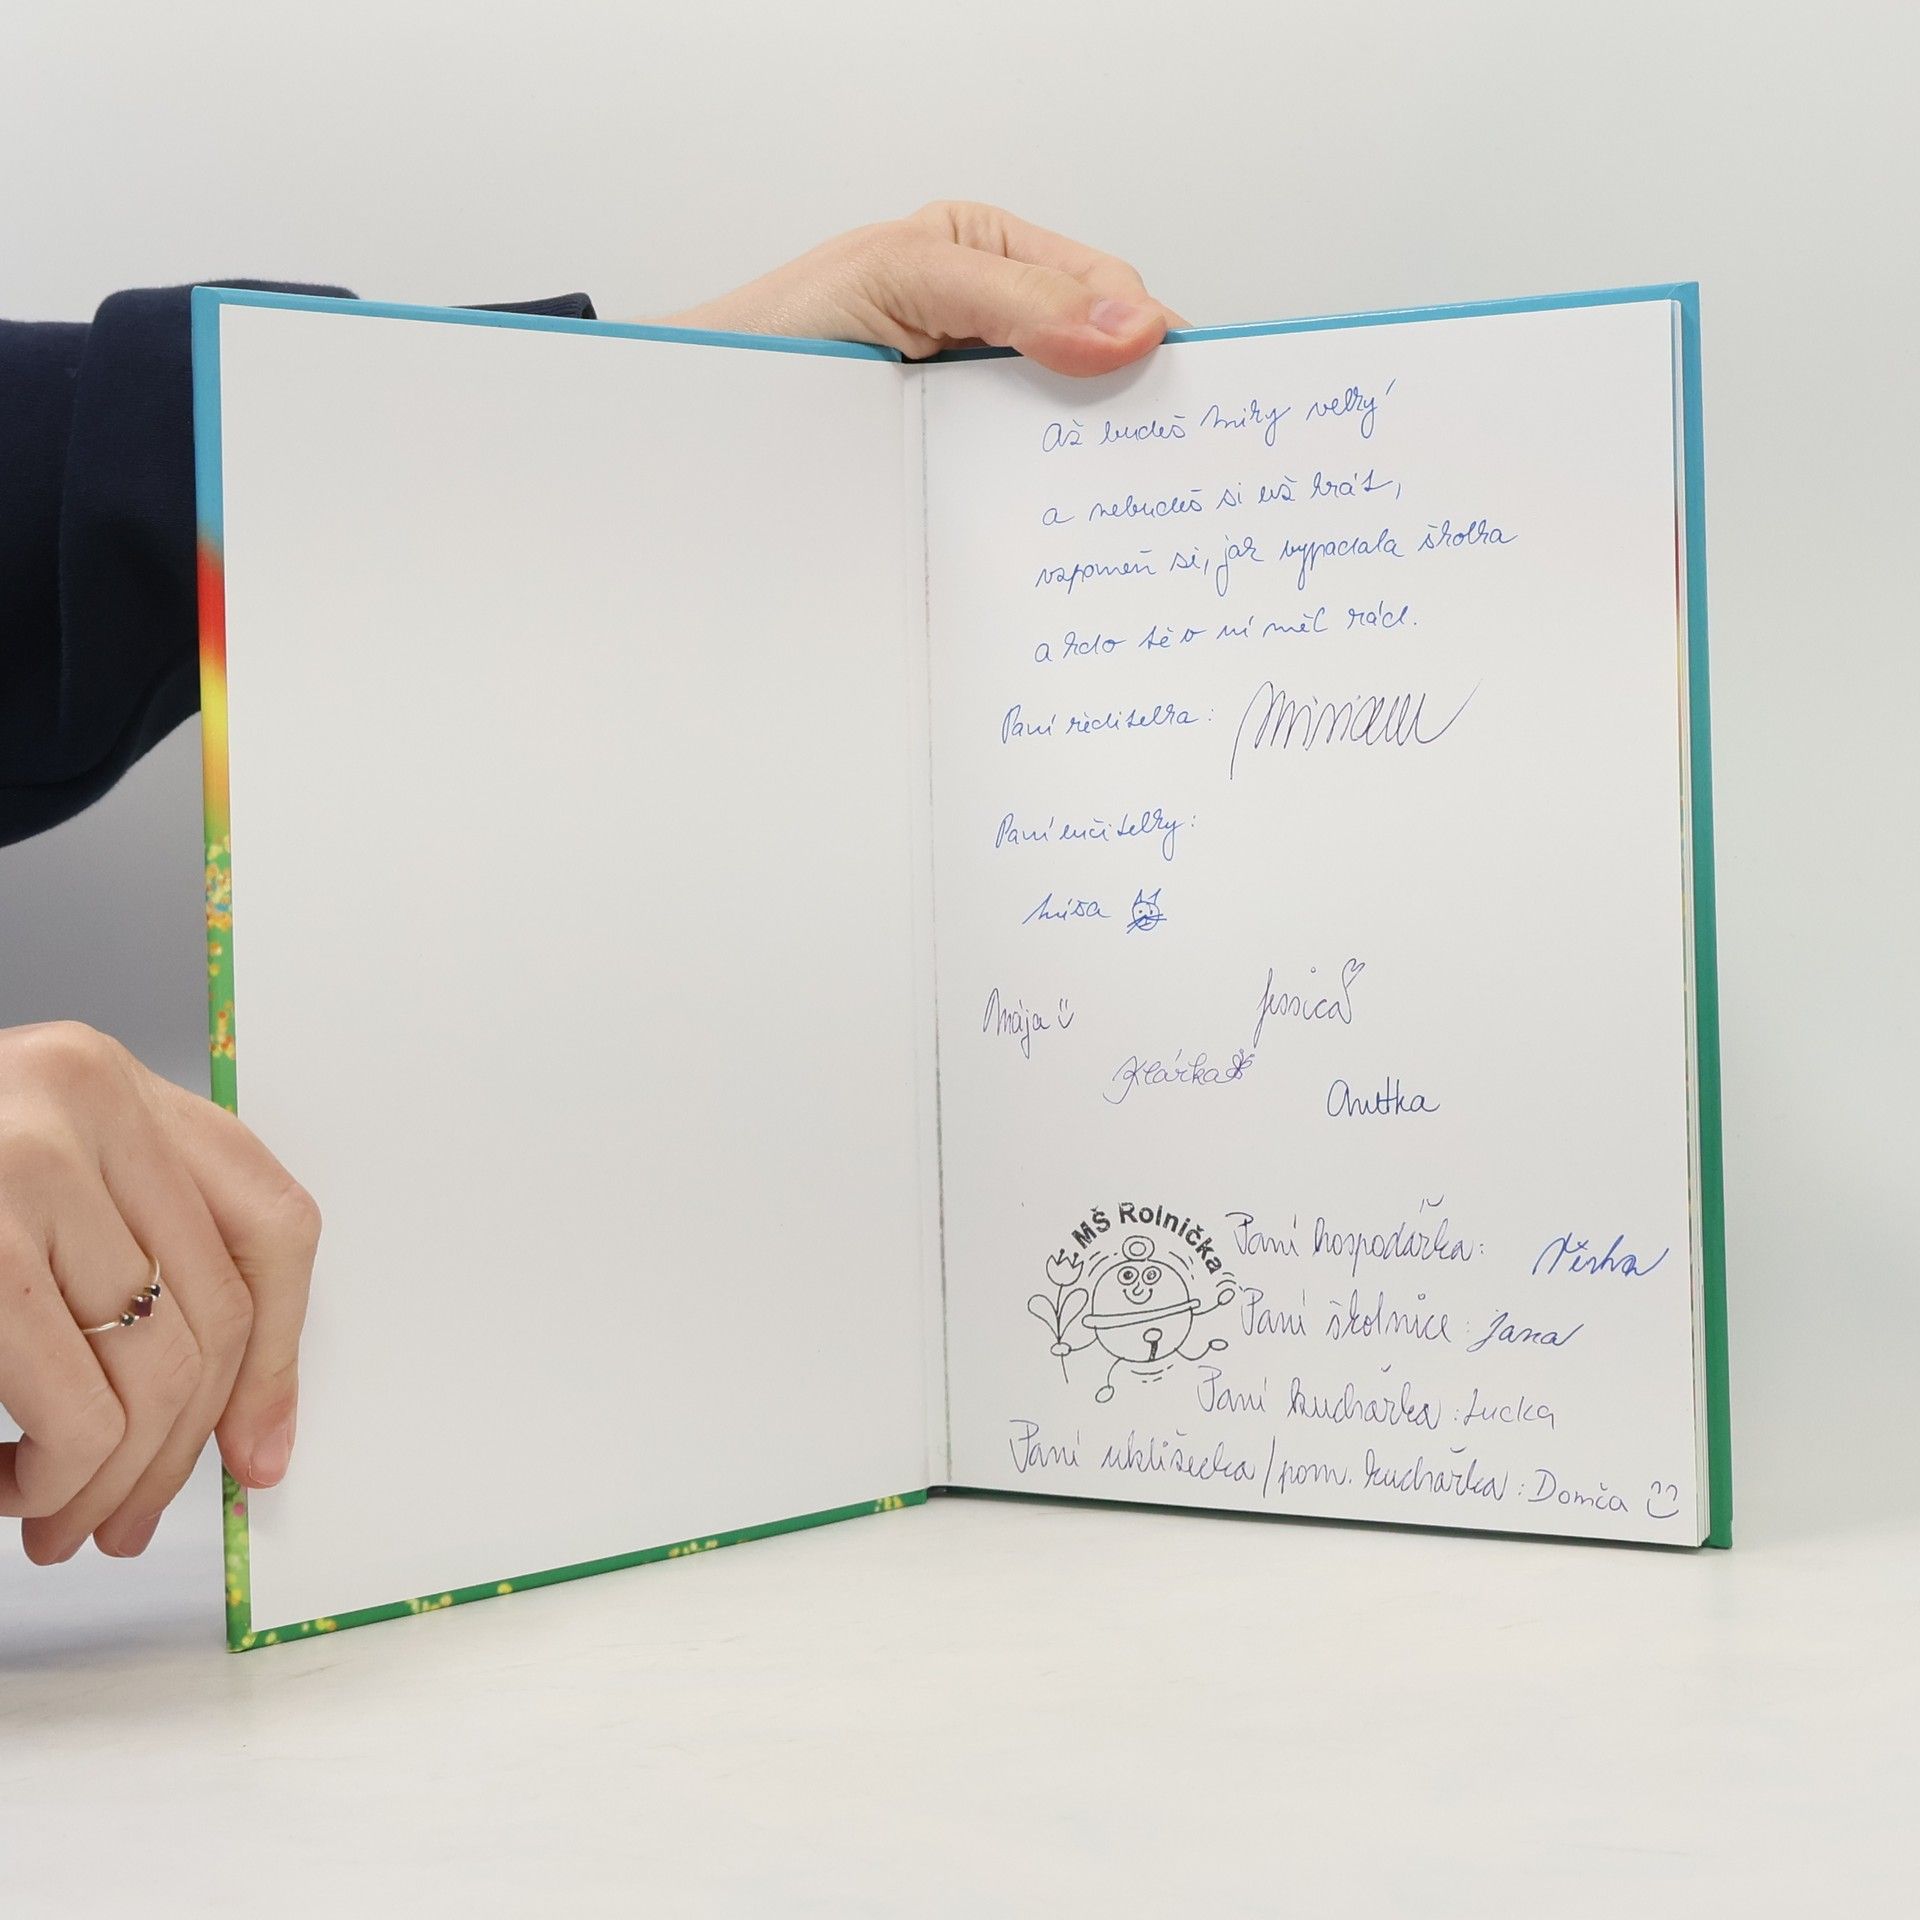 Až budeš Miky velký
a nebudeš si už hrát,
vzpomeň si, jak vypadala školka
a kdo tě v ní měl rád.
Paní ředitelka: Miriam
Paní učitelky:
Míša
Mája
Jessica
Klárka
Anettka
MŠ Rolnička
Paní hospodářka: Věrka
Paní školnice: Jana
Paní kuchařka: Lucka
Paní uklíšečka/pom. kuchařka: Domča